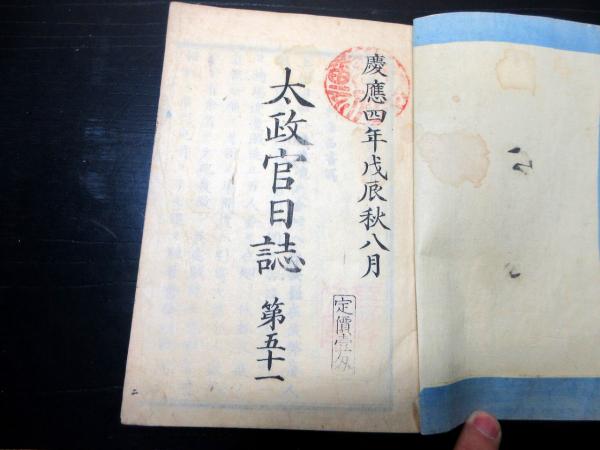 慶應四年戊辰秋八月
太政官日誌 第五十一
定價壹匁
二